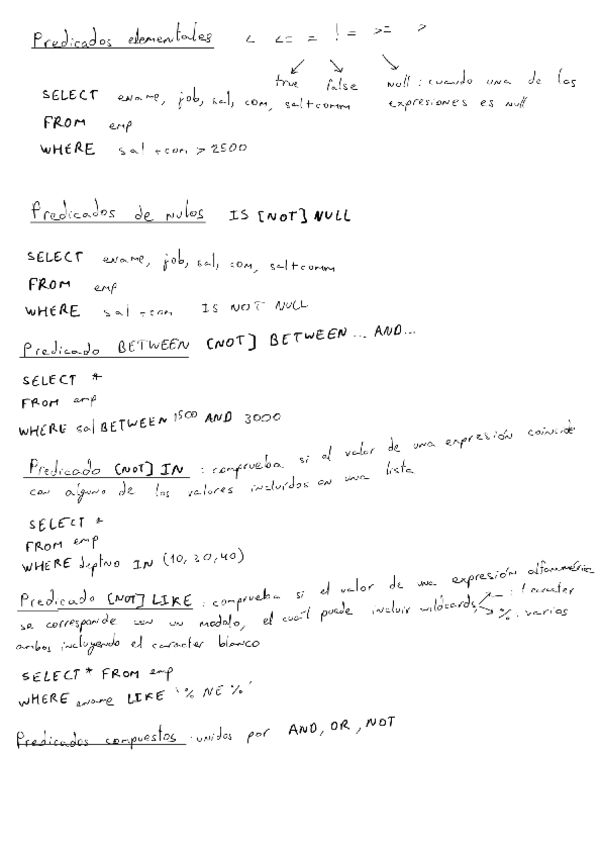 Predicados elementales < <= = != >= >
true false null : cuando una de las
expresiones es null
SELECT ename, job, sal, com, sal+comm
FROM emp
WHERE sal + com > 2500
Predicados de nulos IS [NOT] NULL
SELECT ename, job, sal, com, sal+comm
FROM emp
WHERE sal + com IS NOT NULL
Predicado BETWEEN [NOT] BETWEEN ... AND...
SELECT *
FROM emp
WHERE sal BETWEEN 1500 AND 3000
Predicado [NOT] IN : comprueba si el valor de una expresión coincide
con alguno de los valores incluidos en una lista
SELECT *
FROM emp
WHERE deptno IN (10, 30, 40)
Predicado [NOT] LIKE : comprueba si el valor de una expresión alfanumérica
se corresponde con un modelo, el cual puede incluir wildcards _ : 1 caracter
% : varios
ambos incluyendo el caracter blanco
SELECT * FROM emp
WHERE ename LIKE '% NE %'
Predicados compuestos : unidos por AND, OR, NOT